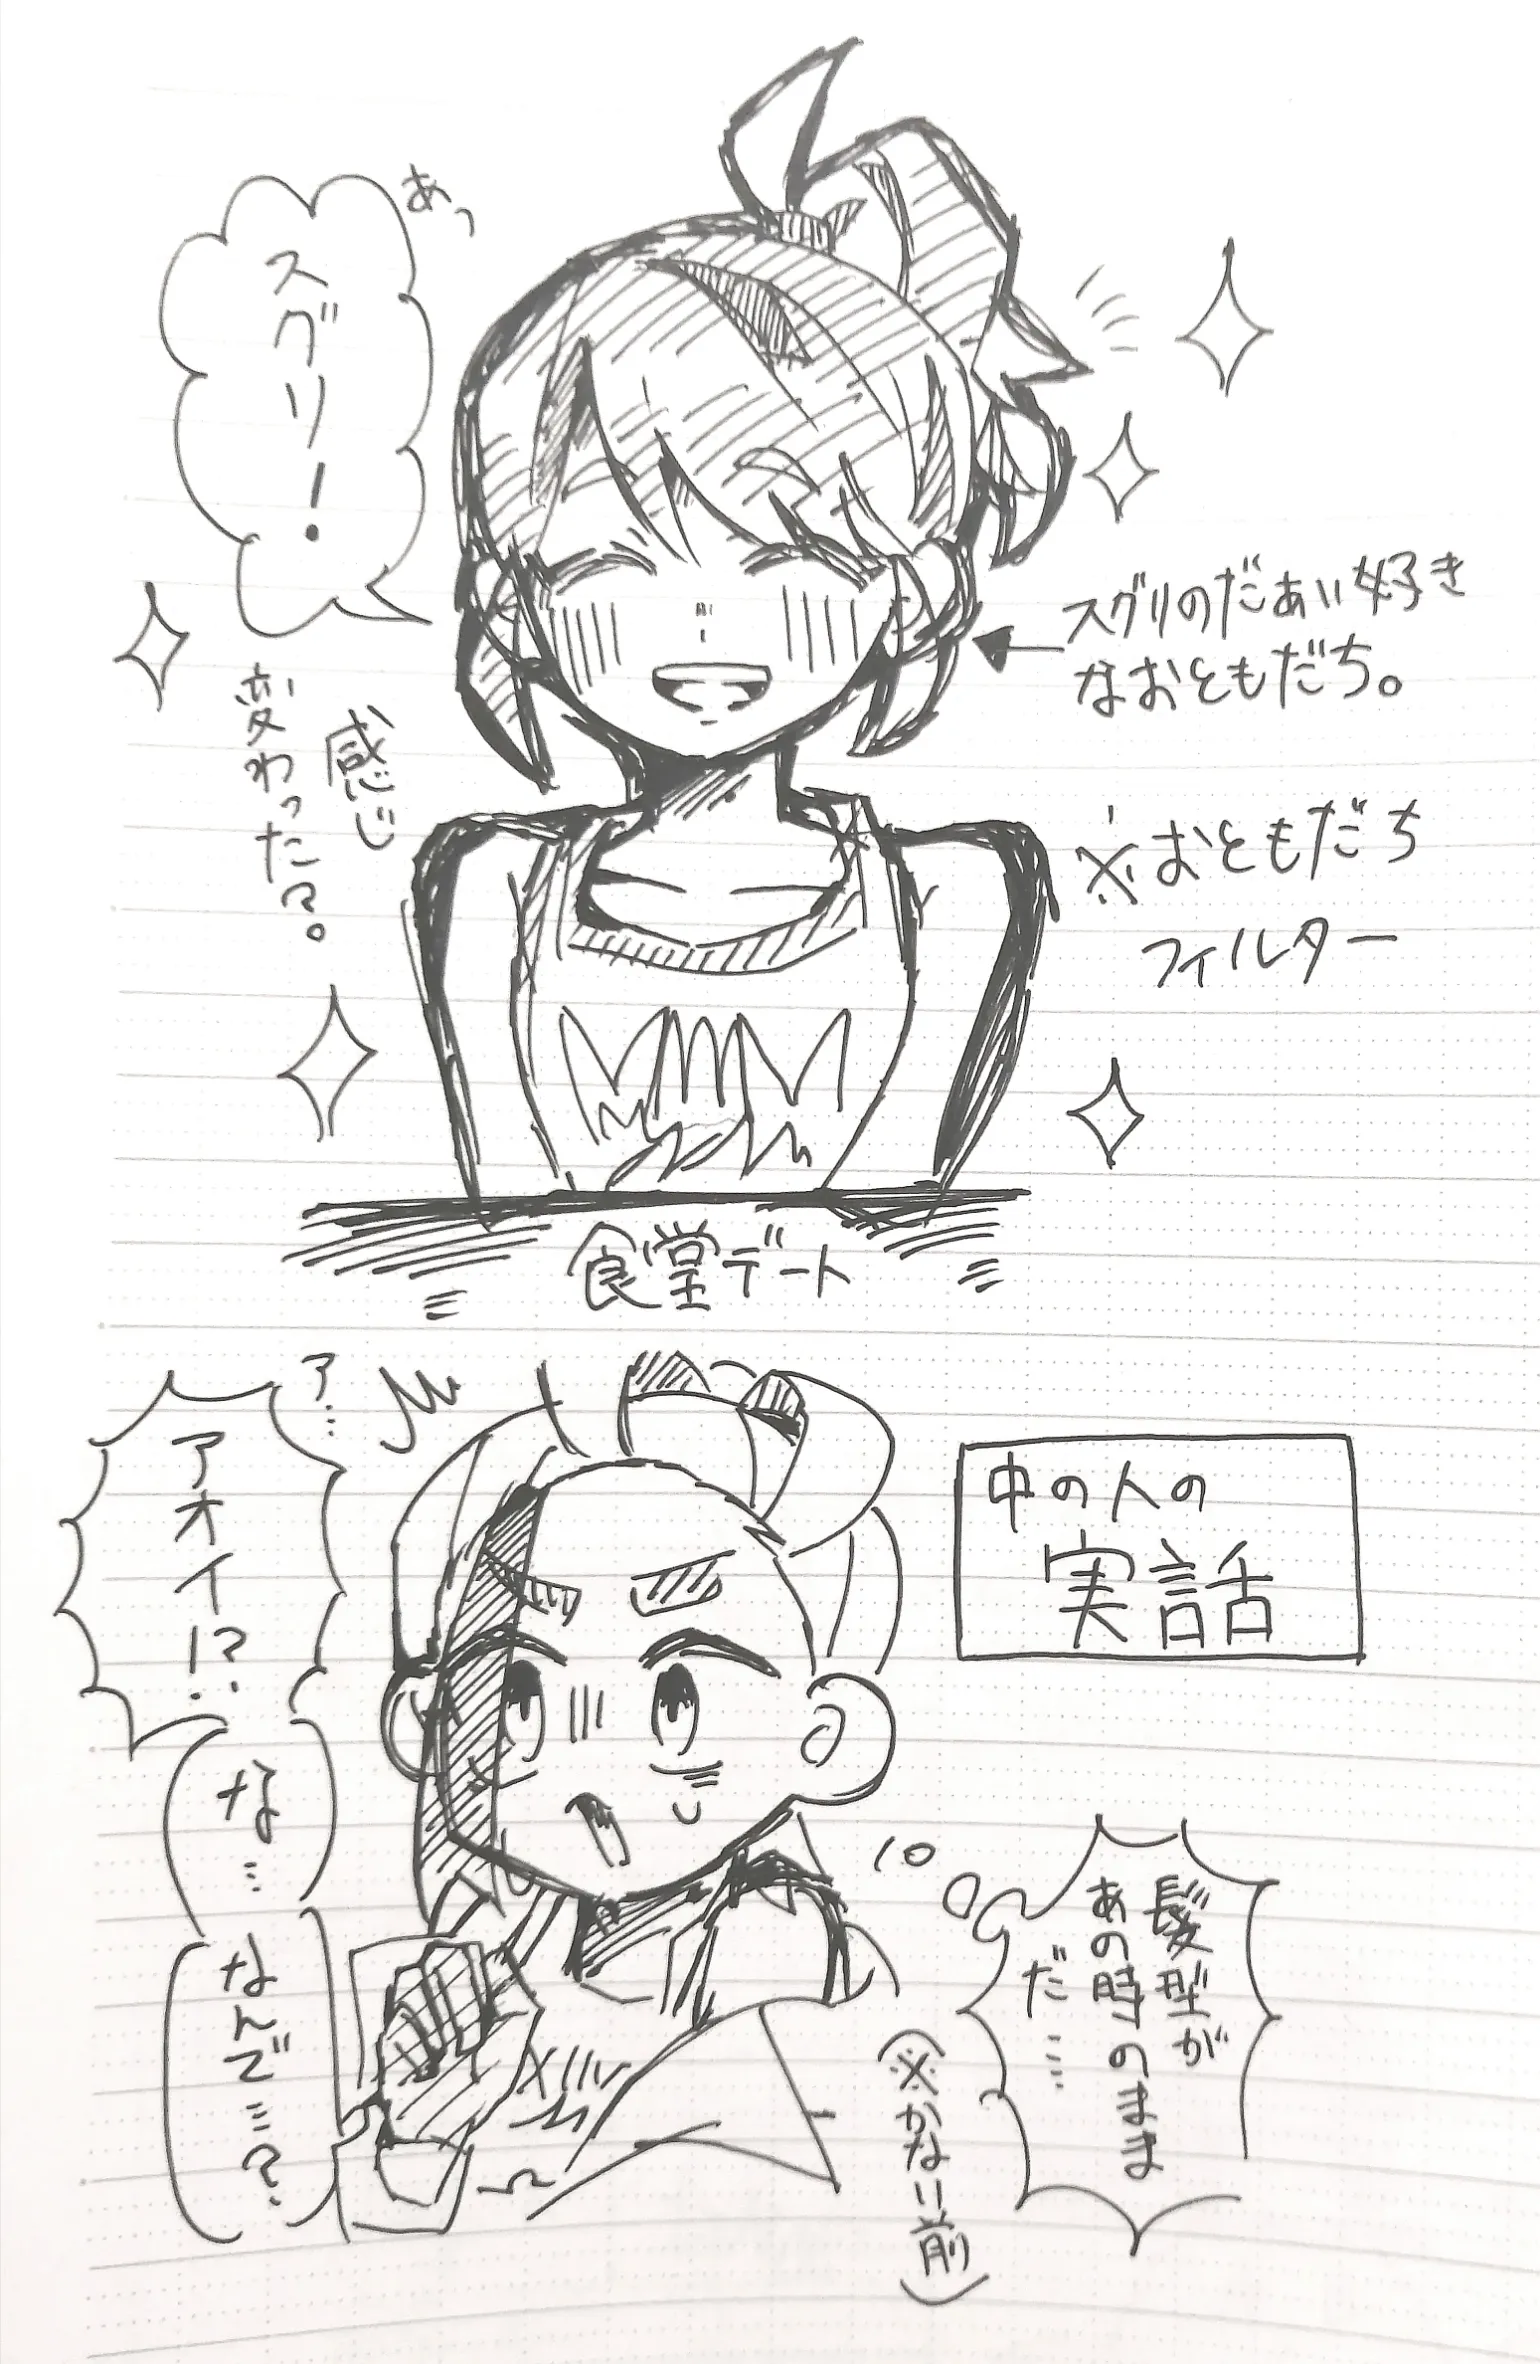 あっ
スグリ！
感じ
変わった？。
スグリのだぁい好き
なおともだち。
※おともだち
フィルター
食堂デート
ア…
アオイ！？
な…
なんで…？
中の人の
実話
髪型が
あの時のまま
だ……
（※かなり前）